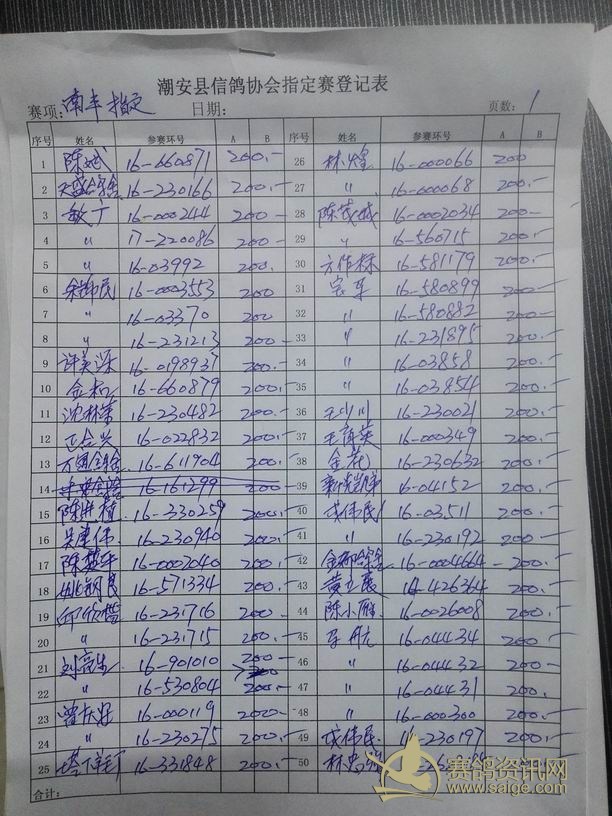 潮安县信鸽协会指定赛登记表
赛项: 南丰指定 日期: 页数: 1
序号 姓名 参赛环号 A B 序号 姓名 参赛环号 A B
1 陈斌 16-660871 200.- 26 林煌 16-000066 200
2 16-230166 200.- 27 〃 16-000068 200.-
3 敏广 16-000244 200- 28 陈茂城 16-0002034 200-
4 〃 17-220086 200- 29 〃 16-560715 200.-
5 〃 16-03992 200. 30 方作林 16-581179 200.-
6 16-0003553 200 31 16-580899 200-
7 〃 16-03370 200 32 〃 16-580882 200-
8 〃 16-231213 200- 33 〃 16-231895 200.-
9 许美深 16-0198937 200.- 34 〃 16-03858 200.-
10 金松 16-660879 200.- 35 〃 16-03854 200.-
11 沈林荣 16-230482 200.- 36 王少川 16-230021 200.-
12 16-022832 200.- 37 16-000349 200.-
13 16-611904 200.- 38 金花 16-230632 200.-
14 16-161299 200- 39 16-04152 200.-
15 16-230259 200.- 40 成伟民 16-03511 200.-
16 吴建伟 16-230940 200.- 41 〃 16-230192 200-
17 16-0002040 200.- 42 16-0004664 200.-
18 姚钢良 16-571334 200.- 43 14-426364 200.-
19 16-231716 200- 44 陈小雁 16-0026008 200.-
20 〃 16-231715 200- 45 16-04434 200-
21 16-901010 200- 46 〃 16-04432 200-
22 〃 16-530804 200.- 47 〃 16-04431 200.
23 16-000119 200- 48 〃 16-000300 200.-
24 〃 16-230275 200.- 49 成伟民 16-230197 200-
25 16-331848 200- 50
合计:
赛鸽资讯网
www.saige.com